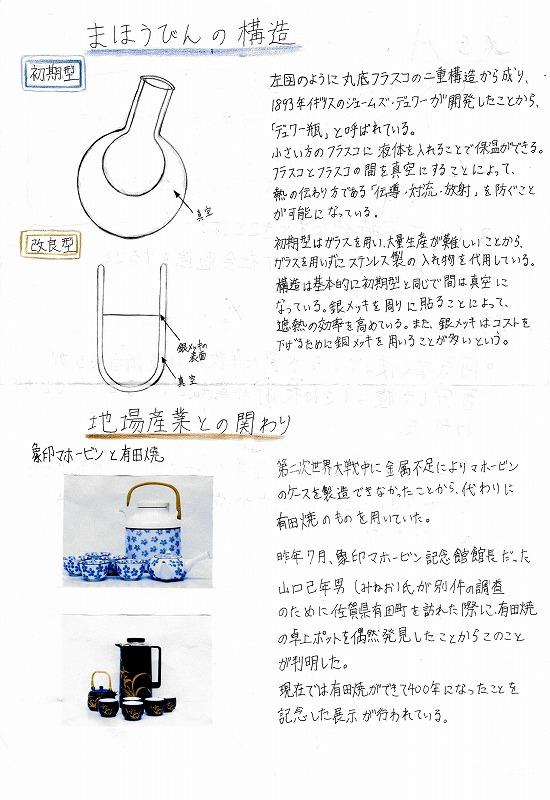 まほうびんの構造
初期型
左図のように丸底フラスコの二重構造から成り、
1893年イギリスのジェームズ・デュワーが開発したことから、
「デュワー瓶」と呼ばれている。
小さい方のフラスコに液体を入れることで保温ができる。
フラスコとフラスコの間を真空にすることによって、
熱の伝わり方である「伝導・対流・放射」を防ぐこと
が可能になっている。
真空
改良型
初期型はガラスを用い、大量生産が難しいことから、
ガラスを用いずにステンレス製の入れ物を代用している。
構造は基本的に初期型と同じで間は真空に
なっている。銀メッキを周りに貼ることによって、
遮熱の効率を高めている。また、銀メッキはコストを
下げるために銅メッキを用いることが多いという。
銀メッキの
表面
真空
地場産業との関わり
象印マホービンと有田焼
第二次世界大戦中に金属不足によりマホービン
のケースを製造できなかったことから、代わりに
有田焼のものを用いていた。
昨年7月、象印マホービン記念館館長だった
山口己年男(みねお)氏が別件の調査
のために佐賀県有田町を訪れた際に、有田焼
の卓上ポットを偶然発見したことからこのこと
が判明した。
現在では有田焼ができて400年になったことを
記念した展示が行われている。